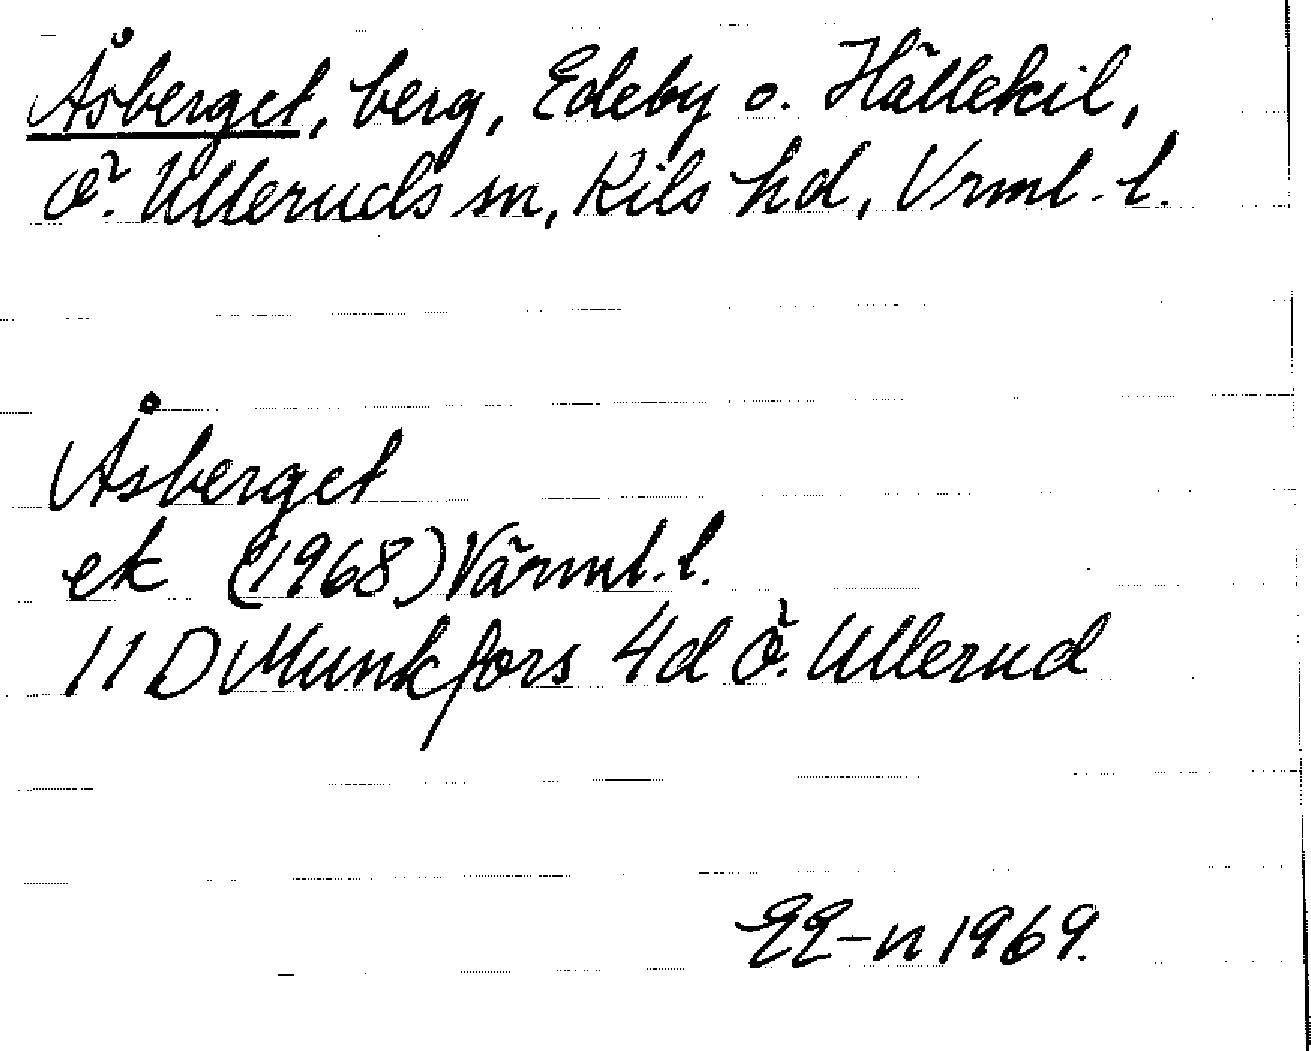 Åsberget, berg, Edeby o. Hällekil,
Ö. Ulleruds sn, Kils hd, Vrml. l.
Åsberget
ek (1968) Värml. l.
11 D Munkfors 4d Ö. Ullerud
EE-n 1969.